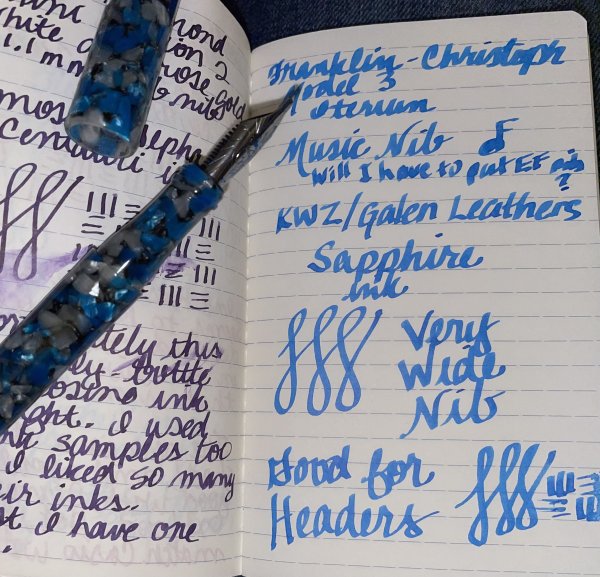 mond
White ion 2
1.1 m rose gold
nibs
most alpha
Centauri i
ately this
ly bottle
osing ink
ght. I used
samples too
I liked so many
eir inks.
I have one
Franklin-Christoph
odel 3
Iterium
Music Nib
Will I have to put EF nib
?
KWZ/Galen Leathers
Sapphire
ink
Very
Wide
Nib
Good for
Headers